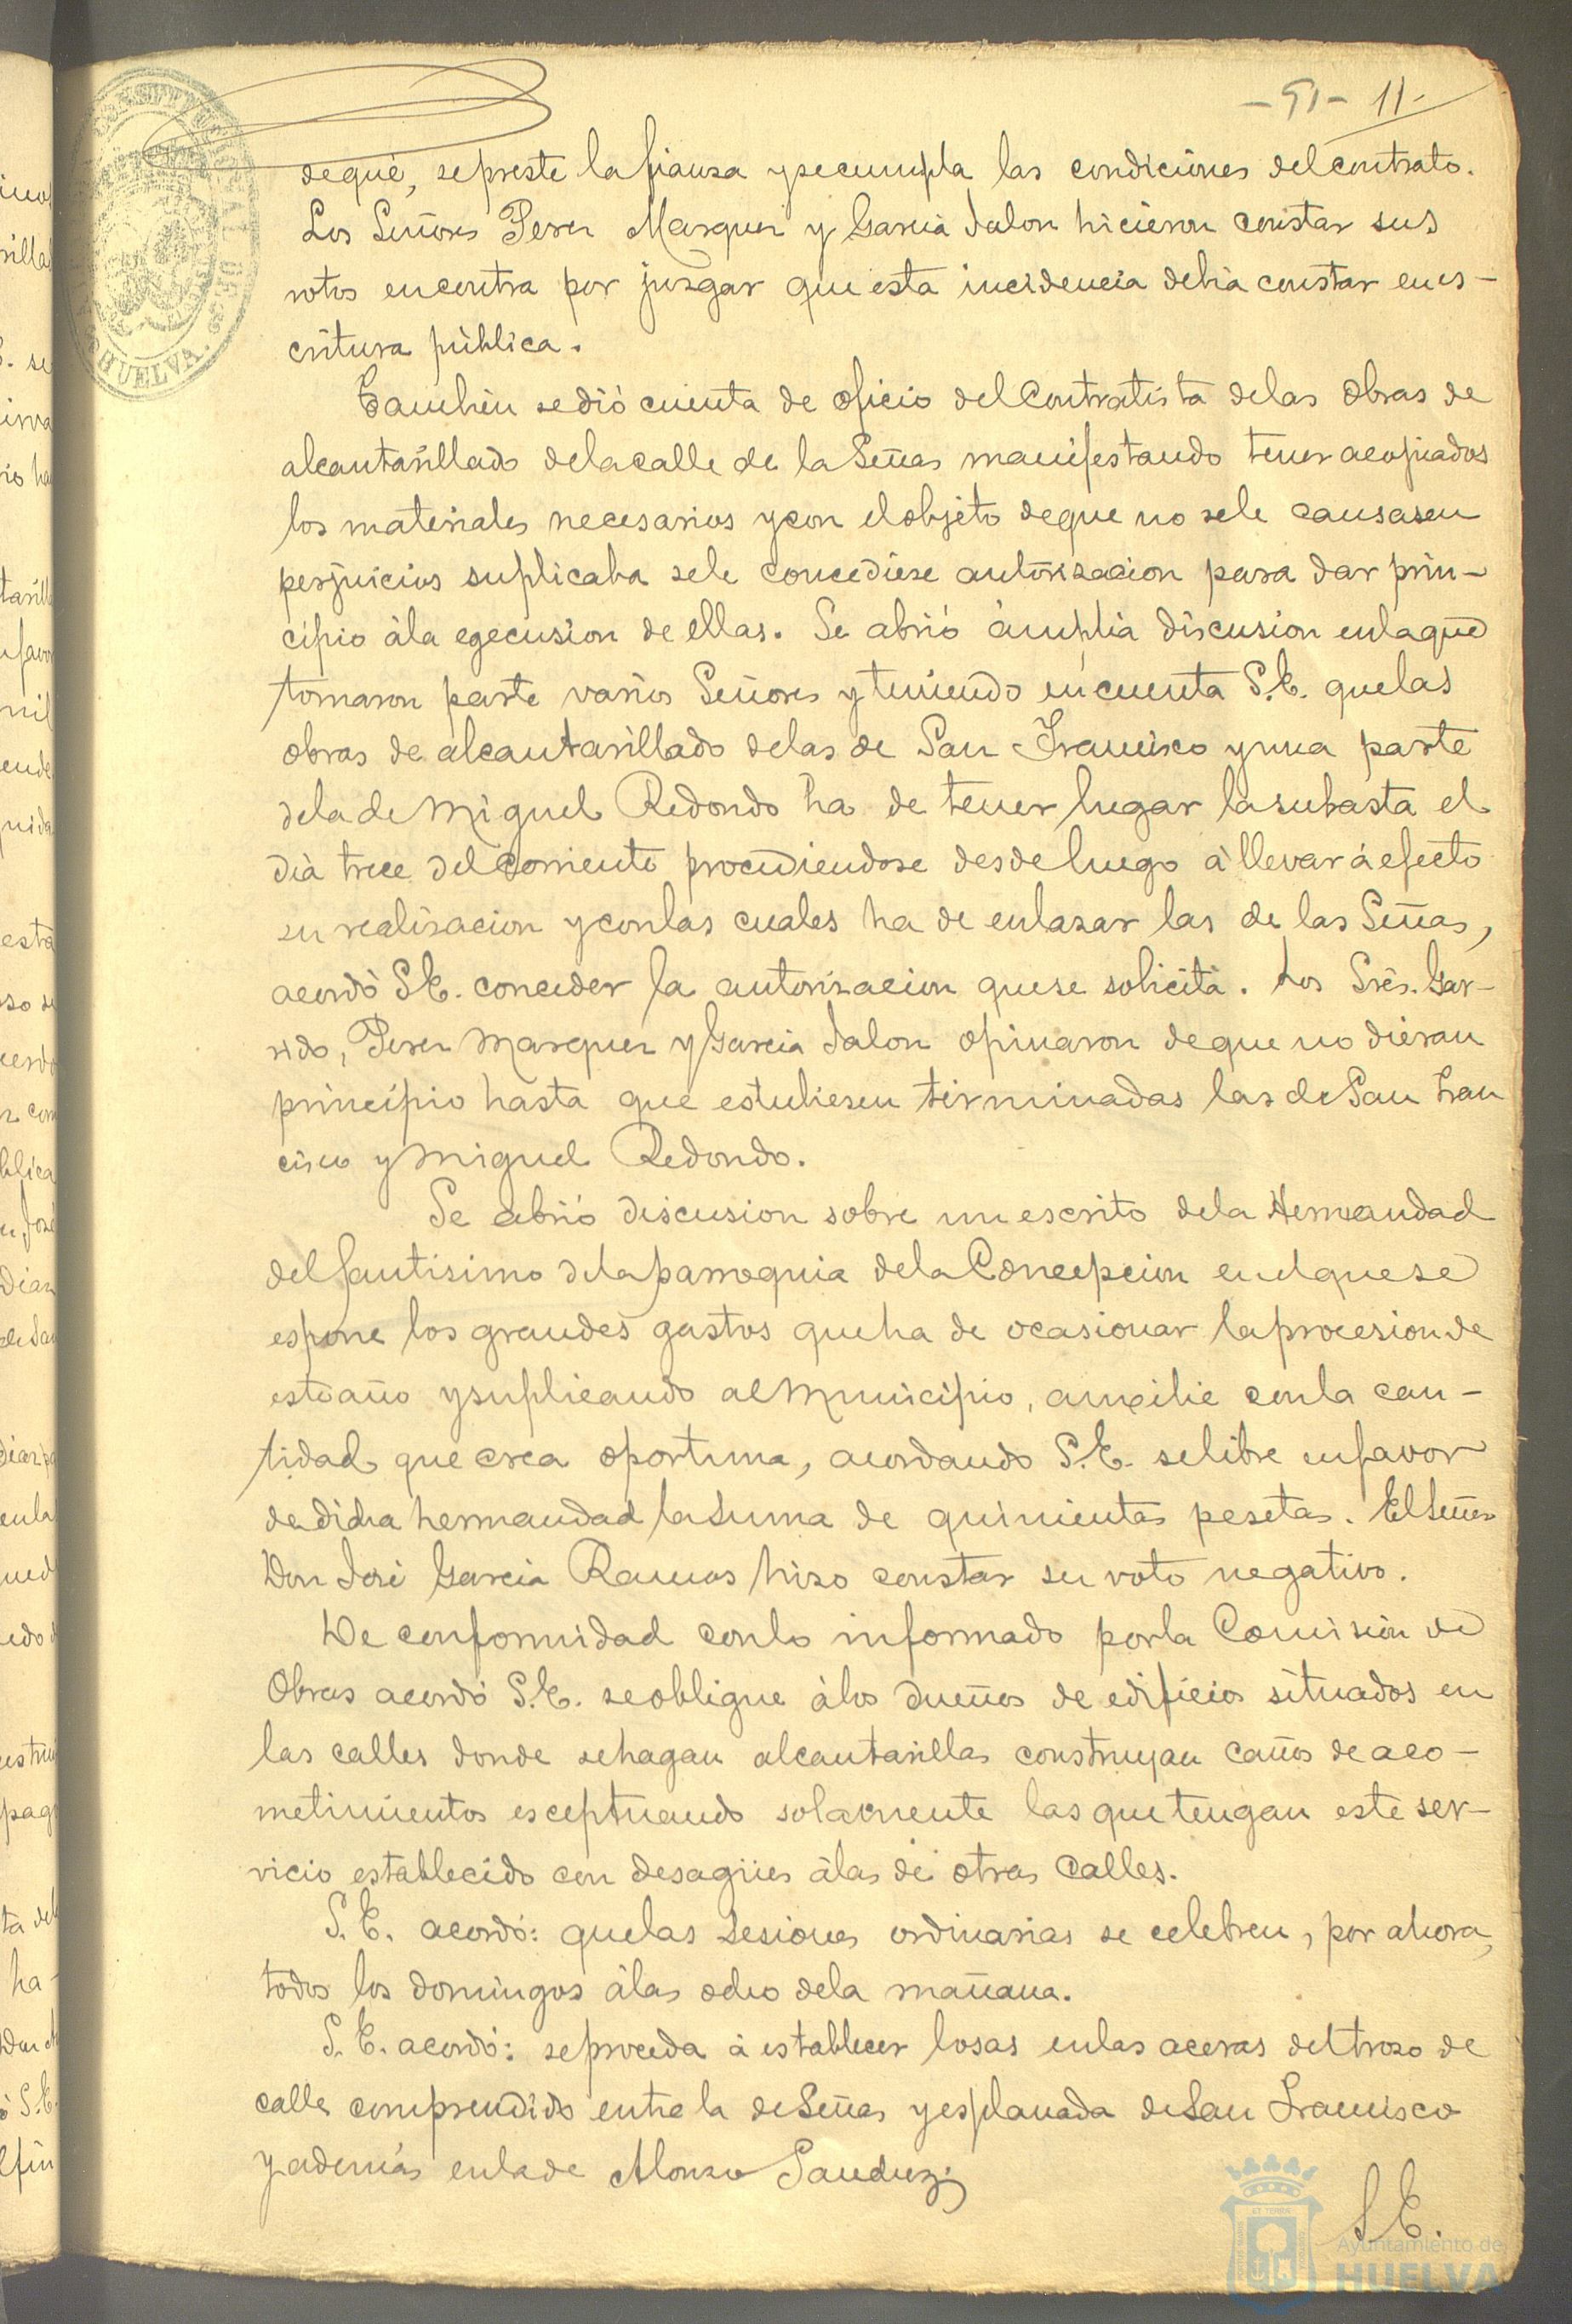 - 51 - 11 -
de que, se preste la fianza y se cumpla las condiciones del contrato.
Los Señores Perez Marquez y Garcia Jalon hicieron constar sus
votos en contra por juzgar que esta incidencia debia constar en es-
critura pública.
Tambien se dió cuenta de oficio del Contratista de las Obras de
alcantarillado de la calle de la Señas manifestando tener acopiados
los materiales necesarios y con el objeto de que no se le causasen
perjuicios suplicaba se le concediese autorizacion para dar prin-
cipio á la egecusion de ellas. Se abrió ámplia discusion en la que
tomaron parte varios Señores y teniendo en cuenta S.E. que las
obras de alcantarillado de las de San Francisco y una parte
de la de Miguel Redondo ha de tener lugar la subasta el
dia trece del corriente procediendose desde luego á llevar á efecto
su realizacion y con las cuales ha de enlazar las de las Señas,
acordó S.E. conceder la autorizacion que se solicita. Los Sres. Gar-
rido, Perez Marquez y Garcia Jalon opinaron de que no dieran
principio hasta que estubiesen terminadas las de San Fran
cisco y Miguel Redondo.
Se abrió discusion sobre un escrito de la Hermandad
del Santisimo de la parroquia de la Concepcion en el que se
espone los grandes gastos que ha de ocasionar la procesion de
este año y suplicando al Municipio, auxilie con la can-
tidad que crea oportuna, acordando S.E. se libre en favor
de dicha hermandad la suma de quinientas pesetas. El Señor
Don José Garcia Ramos hizo constar su voto negativo.
De conformidad con lo informado por la Comision de
Obras acordó S.E. se obligue á los dueños de edificios situados en
las calles donde se hagan alcantarillas construyan caños de aco-
metimientos esceptuando solamente las que tengan este ser-
vicio establecido con desagües á las de otras Calles.
S.E. acordó: que las sesiones ordinarias se celebren, por ahora,
todos los domingos á las ocho de la mañana.
S.E. acordó: se proceda á establecer losas en las aceras del trozo de
calle comprendido entre la de Señas y esplanada de San Francisco
y además en la de Alonso Sanchez;
S.E.
HUELVA.
Ayuntamiento de
HUELVA